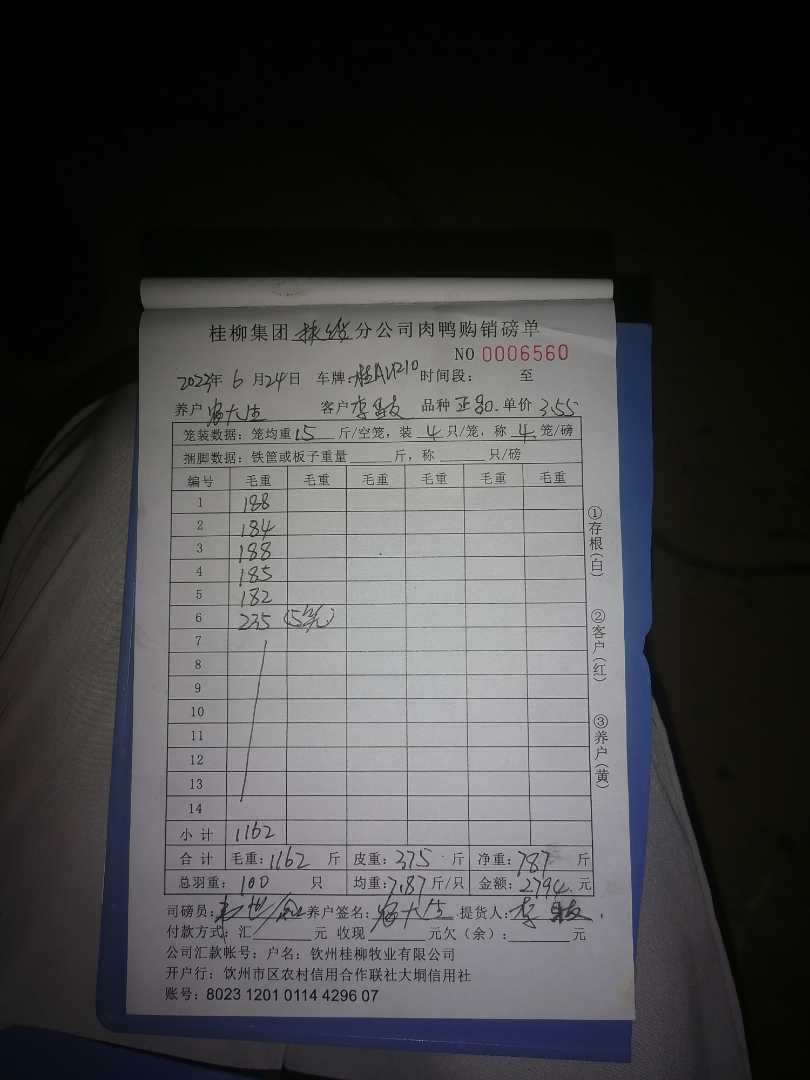 桂柳集团 分公司肉鸭购销磅单
NO 0006560
2023年 6 月24日 车牌: 时间段: 至
养户 客户 李 品种 单价 3.55
笼装数据: 笼均重 15 斤/空笼, 装 4 只/笼, 称 4 笼/磅
捆脚数据: 铁筐或板子重量 斤, 称 只/磅
编号 毛重 毛重 毛重 毛重 毛重 毛重
1 188
2 184
3 188
4 185
5 182
6 235 (5笼)
7
8
9
10
11
12
13
14
小计 1162
合计 毛重: 1162 斤 皮重: 375 斤 净重: 787 斤
总羽重: 100 只 均重: 7.87 斤/只 金额: 2794 元
司磅员: 养户签名: 提货人: 李
付款方式: 汇 元 收现 元欠(余): 元
公司汇款帐号: 户名: 钦州桂柳牧业有限公司
开户行: 钦州市区农村信用合作联社大垌信用社
账号: 8023 1201 0114 4296 07
①存根(白)
②客户(红)
③养户(黄)